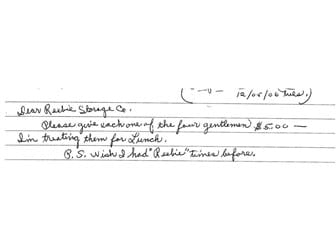 12/05/06 Tues.)
Dear Reebie Storage Co.
Please give each one of the four gentlemen $5.00 —
I'm treating them for Lunch.
P.S. Wish I had "Reebie" times before.